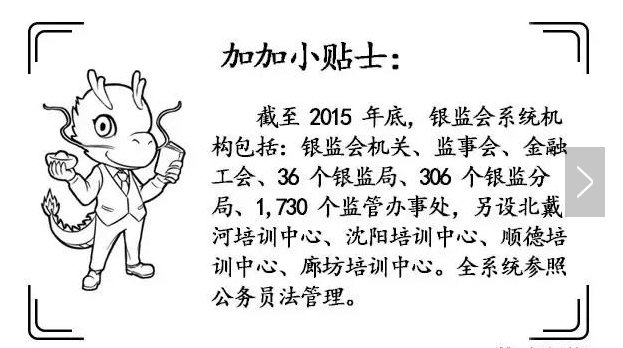 加加小贴士：
截至 2015 年底，银监会系统机
构包括：银监会机关、监事会、金融
工会、36 个银监局、306 个银监分
局、1,730 个监管办事处，另设北戴
河培训中心、沈阳培训中心、顺德培
训中心、廊坊培训中心。全系统参照
公务员法管理。